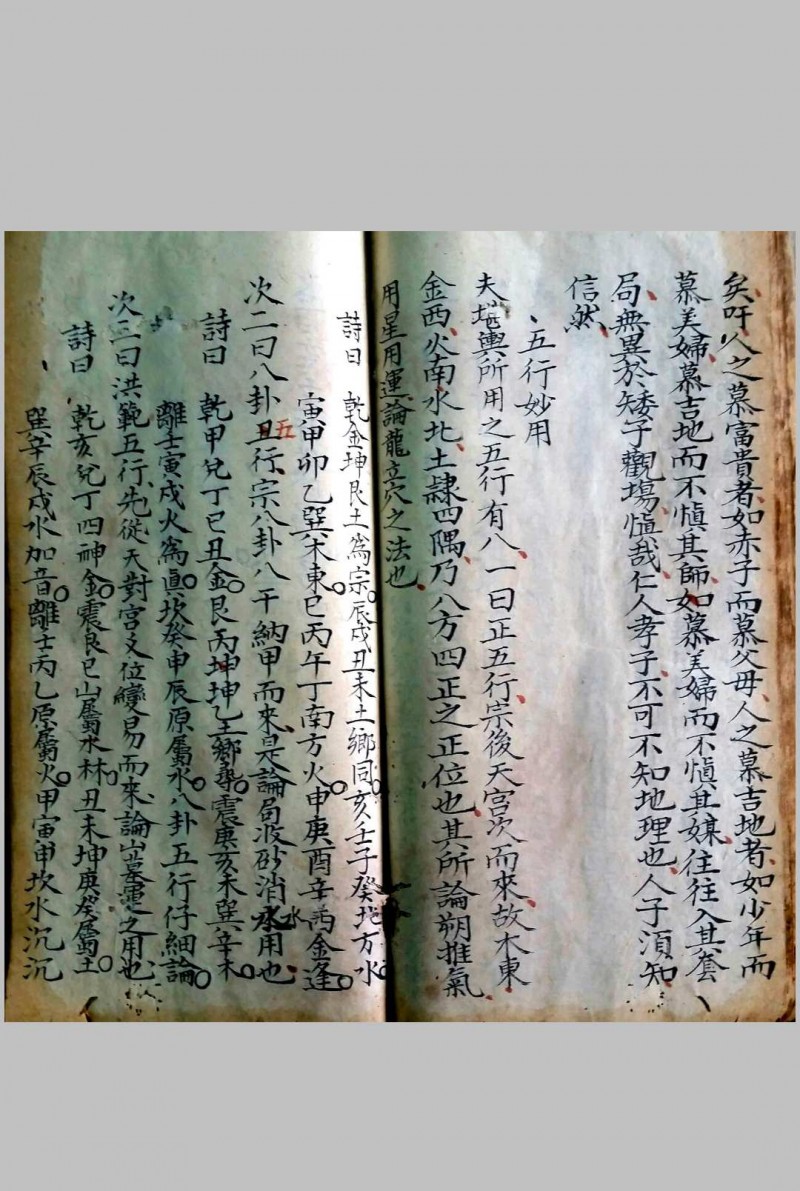 矣吁人之慕富貴者如赤子而慕父母人之慕吉地者如少年而
慕美婦慕吉地而不慎其師如慕美婦而不慎其媒往往入其套
局無異於矮子觀塲慎哉仁人孝子不可不知地理也人子須知
信然
五行妙用
夫堪輿所用之五行有八一曰正五行崇後天宮次而來故木東
金西火南水北土隸四隅乃八方四正之正位也其所論朔推氣
用星用運論龍立穴之法也
詩曰 乾金坤艮土為宗辰戌丑未土鄉同亥壬子癸北方水
寅甲卯乙巽木東巳丙午丁南方火申庚酉辛兩金逢
次二曰八卦五行宗八卦八干納甲而來是論局收砂消水用也
詩曰 乾甲兌丁巳丑金艮丙坤坤乙土鄉尋震庚亥未巽辛木
離壬寅戌火為真坎癸申辰原屬水八卦五行仔細論
次三曰洪範五行先從天對宮爻位變易而來論山墓運之用也
詩曰 乾亥兌丁四神金震艮巳山屬木林丑未坤庚癸屬土
巽辛辰戌水加音離壬丙乙原屬火甲寅申坎水沉沉